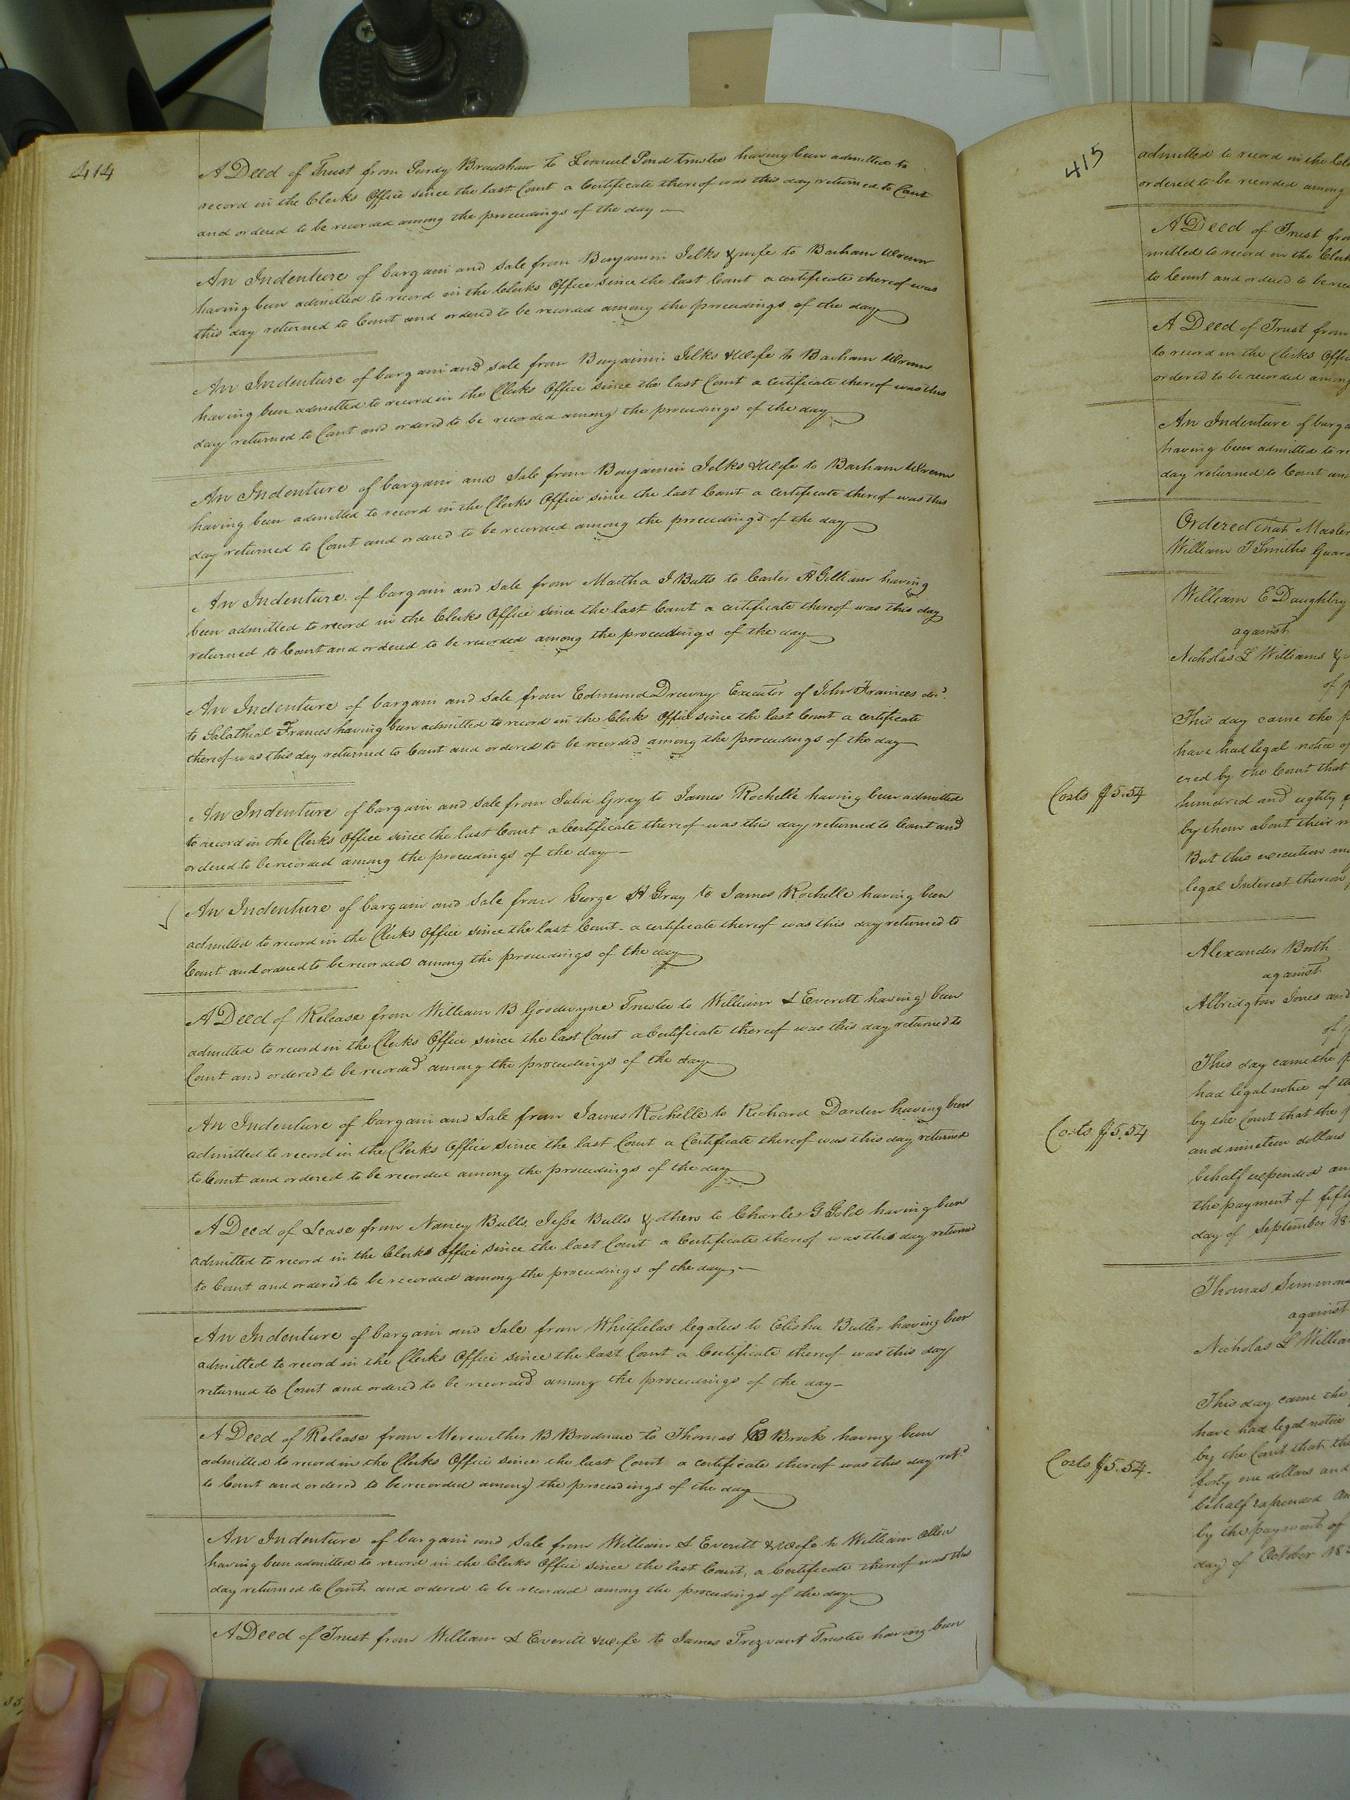 414
A Deed of Trust from Purdy Bradshaw to Lemuel Pond trustee having been admitted to
record in the Clerks Office since the last Court a Certificate thereof was this day returned to Court
and ordered to be recorded among the proceedings of the day
An Indenture of bargain and sale from Benjamin Jelks & wife to Barham
having been admitted to record in the Clerks Office since the last Court a certificate thereof was
this day returned to Court and ordered to be recorded among the proceedings of the day
An Indenture of bargain and sale from Benjamin Jelks & wife to Barham
having been admitted to record in the Clerks Office since the last Court a certificate thereof was this
day returned to Court and ordered to be recorded among the proceedings of the day
An Indenture of bargain and sale from Benjamin Jelks & wife to Barham
having been admitted to record in the Clerks Office since the last Court a certificate thereof was this
day returned to Court and ordered to be recorded among the proceedings of the day
An Indenture of bargain and sale from Martha J Butts to Carter A Gilliam having
been admitted to record in the Clerks Office since the last Court a certificate thereof was this day
returned to Court and ordered to be recorded among the proceedings of the day
An Indenture of bargain and sale from Edmund Drewry Executor of John Frances decd.
to Salathial Frances having been admitted to record in the Clerks Office since the last Court a certificate
thereof was this day returned to Court and ordered to be recorded among the proceedings of the day
An Indenture of bargain and sale from Julia Gray to James Rochelle having been admitted
to record in the Clerks Office since the last Court a Certificate thereof was this day returned to Court and
ordered to be recorded among the proceedings of the day
An Indenture of bargain and sale from George H Gray to James Rochelle having been
admitted to record in the Clerks Office since the last Court a certificate thereof was this day returned to
Court and ordered to be recorded among the proceedings of the day
A Deed of Release from William B Goodwyne Trustee to William L Everitt having been
admitted to record in the Clerks Office since the last Court a Certificate thereof was this day returned to
Court and ordered to be recorded among the proceedings of the day
An Indenture of bargain and sale from James Rochelle to Richard Darden having been
admitted to record in the Clerks Office since the last Court a Certificate thereof was this day returned
to Court and ordered to be recorded among the proceedings of the day
A Deed of Lease from Nancy Bulls, Jesse Bulls & others to Charles G Gold having been
admitted to record in the Clerks Office since the last Court a Certificate thereof was this day returned
to Court and ordered to be recorded among the proceedings of the day
An Indenture of bargain and sale from Whitfields legatees to Elisha Butler having been
admitted to record in the Clerks Office since the last Court a Certificate thereof was this day
returned to Court and ordered to be recorded among the proceedings of the day
A Deed of Release from Merewether B Brodnax to Thomas Brock having been
admitted to record in the Clerks Office since the last Court a certificate thereof was this day retd
to Court and ordered to be recorded among the proceedings of the day
An Indenture of bargain and sale from William L Everitt & wife to William Allen
having been admitted to record in the Clerks Office since the last Court, a Certificate thereof was this
day returned to Court and ordered to be recorded among the proceedings of the day
A Deed of Trust from William L Everitt & wife to James Trezvant Trustee having been
415
admitted to record in the
ordered to be recorded among
A Deed of Trust
mitted to record in the Clerks
to Court and ordered to be
A Deed of Trust from
to record in the Clerks
ordered to be recorded among
An Indenture of
having been admitted to
day returned to Court
Ordered that Master
William T Smiths
William E Daughtry
against
Nicholas L Williams
of
This day came the
have had legal notice
ered by the Court that
Costs $5.54
hundred and eighty
by them about their
But this execution
legal Interest thereon
Alexander Booth
against
Albridgton Jones and
of
This day came the
had legal notice of
by the Court that the
Costs $5.54
and nineteen dollars
behalf expended
the payment of
day of September
Thomas Simmons
against
Nicholas L
This day came the
have had legal notice
by the Court that
Costs $5.54.
forty one dollars and
behalf expended
by the payment of
day of October